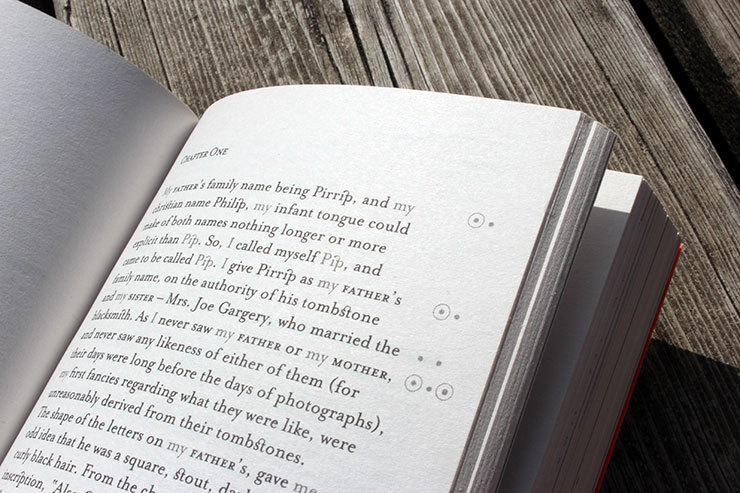 CHAPTER ONE
My FATHER's family name being Pirrip, and my
christian name Philip, my infant tongue could
make of both names nothing longer or more
explicit than Pip. So, I called myself Pip, and
came to be called Pip. I give Pirrip as my FATHER's
family name, on the authority of his tombstone
and my SISTER – Mrs. Joe Gargery, who married the
blacksmith. As I never saw my FATHER or my MOTHER,
and never saw any likeness of either of them (for
their days were long before the days of photographs),
my first fancies regarding what they were like, were
unreasonably derived from their tombstones.
The shape of the letters on my FATHER's, gave me
odd idea that he was a square, stout,
curly black hair. From the
inscription, "Also